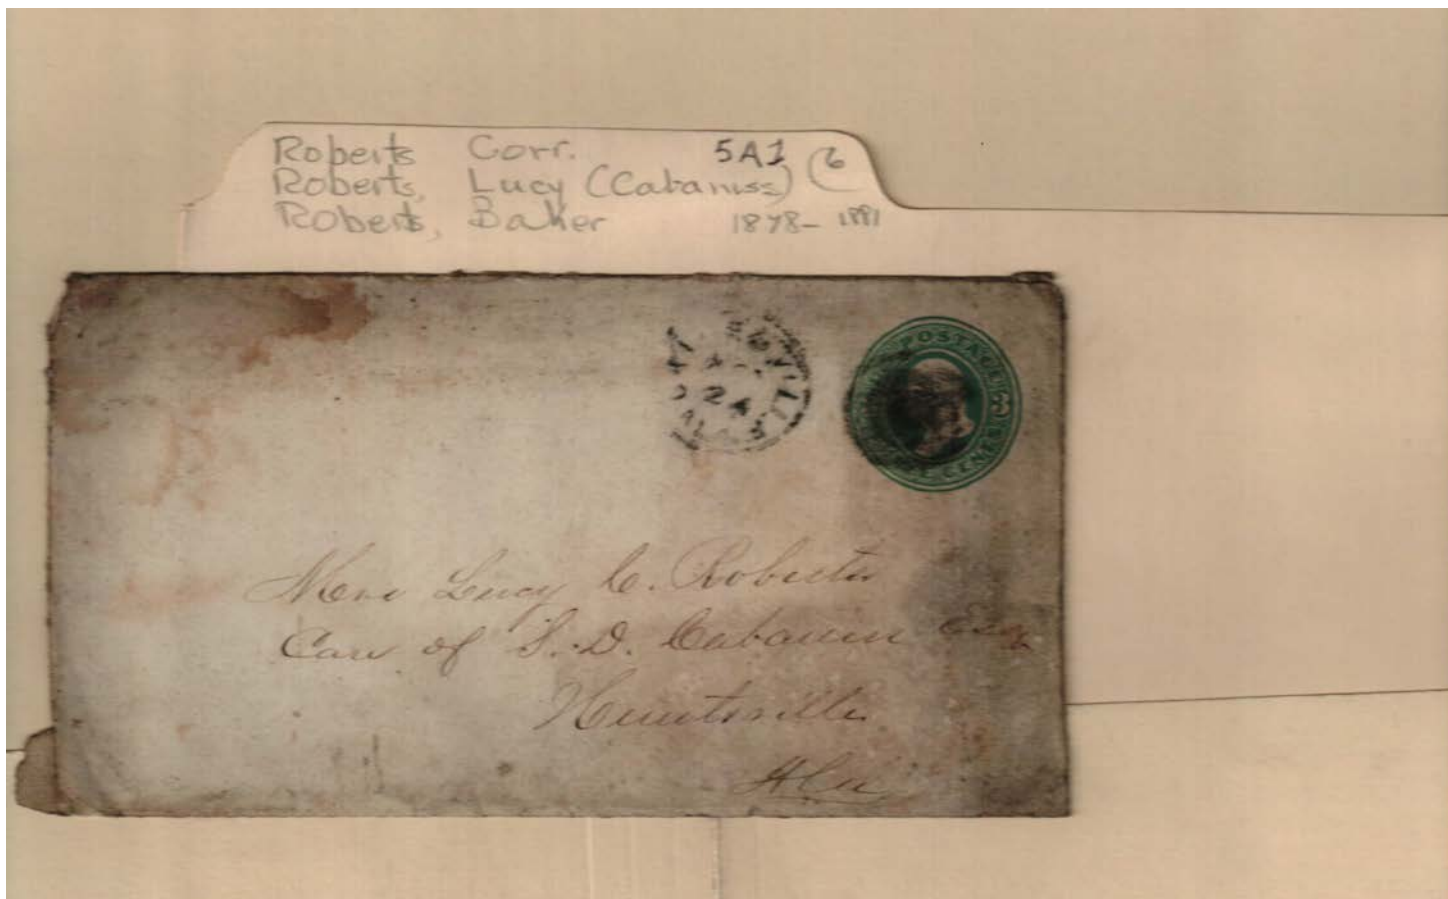 Roberts Corr. 5A1 6
Roberts, Lucy (Cabaniss)
Roberts, Baker 1878-1881
24
ALA
POSTAGE
3
CENTS
Mrs Lucy C. Roberts
Care of S. D. Cabaniss Esq
Huntsville
Ala